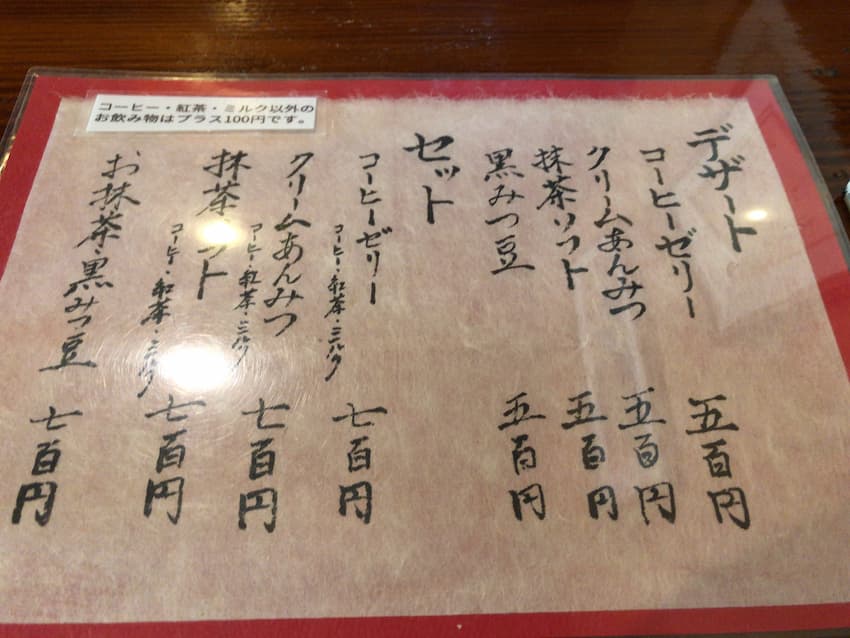 コーヒー・紅茶・ミルク以外の
お飲み物はプラス100円です。
デザート
コーヒーゼリー 五百円
クリームあんみつ 五百円
抹茶ソフト 五百円
黒みつ豆 五百円
セット
コーヒーゼリー 七百円
コーヒー・紅茶・ミルク
クリームあんみつ 七百円
コーヒー・紅茶・ミルク
抹茶ソフト 七百円
コーヒー・紅茶・ミルク
お抹茶・黒みつ豆 七百円